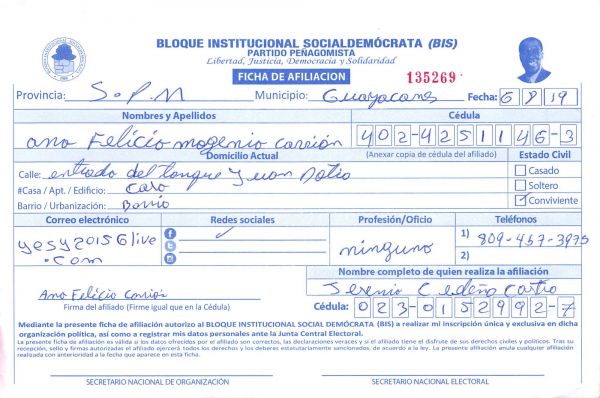 BLOQUE INSTITUCIONAL SOCIALDEMÓCRATA (BIS)
PARTIDO PEÑAGOMISTA
Libertad, Justicia, Democracia y Solidaridad
FICHA DE AFILIACION
135269
Provincia: S.P.M Municipio: Guayacanes Fecha: 6 8 19
Nombres y Apellidos Cédula
Ana Felicia mogenio carrión 402-4251146-3
Domicilio Actual (Anexar copia de cédula del afiliado) Estado Civil
Calle: entrada del tanque Juan Casado
#Casa / Apt. / Edificio: Casa Soltero
Barrio / Urbanización: Barrio Conviviente
Correo electrónico Redes sociales Profesión/Oficio Teléfonos
yesy2015@live ninguno 1) 809-457-3975
.com 2)
Nombre completo de quien realiza la afiliación
Ana Felicia Carrión Cedeño Castro
Firma del afiliado (Firme igual que en la Cédula) Cédula: 023-0152992-7
Mediante la presente ficha de afiliación autorizo al BLOQUE INSTITUCIONAL SOCIAL DEMÓCRATA (BIS) a realizar mi inscripción única y exclusiva en dicha
organización política, así como a registrar mis datos personales ante la Junta Central Electoral.
La presente ficha de afiliación es válida si los datos ofrecidos por el afiliado son correctos, las declaraciones veraces y si el afiliado tiene el disfrute de sus derechos civiles y políticos. Tras su
recepción, sello y firmas autorizadas el afiliado ejercerá todos los derechos y los deberes estatutariamente sancionados, de acuerdo a ley. La presente afiliación anula cualquier afiliación
realizada con anterioridad a la fecha que aparece en esta ficha.
SECRETARIO NACIONAL DE ORGANIZACIÓN SECRETARIO NACIONAL ELECTORAL